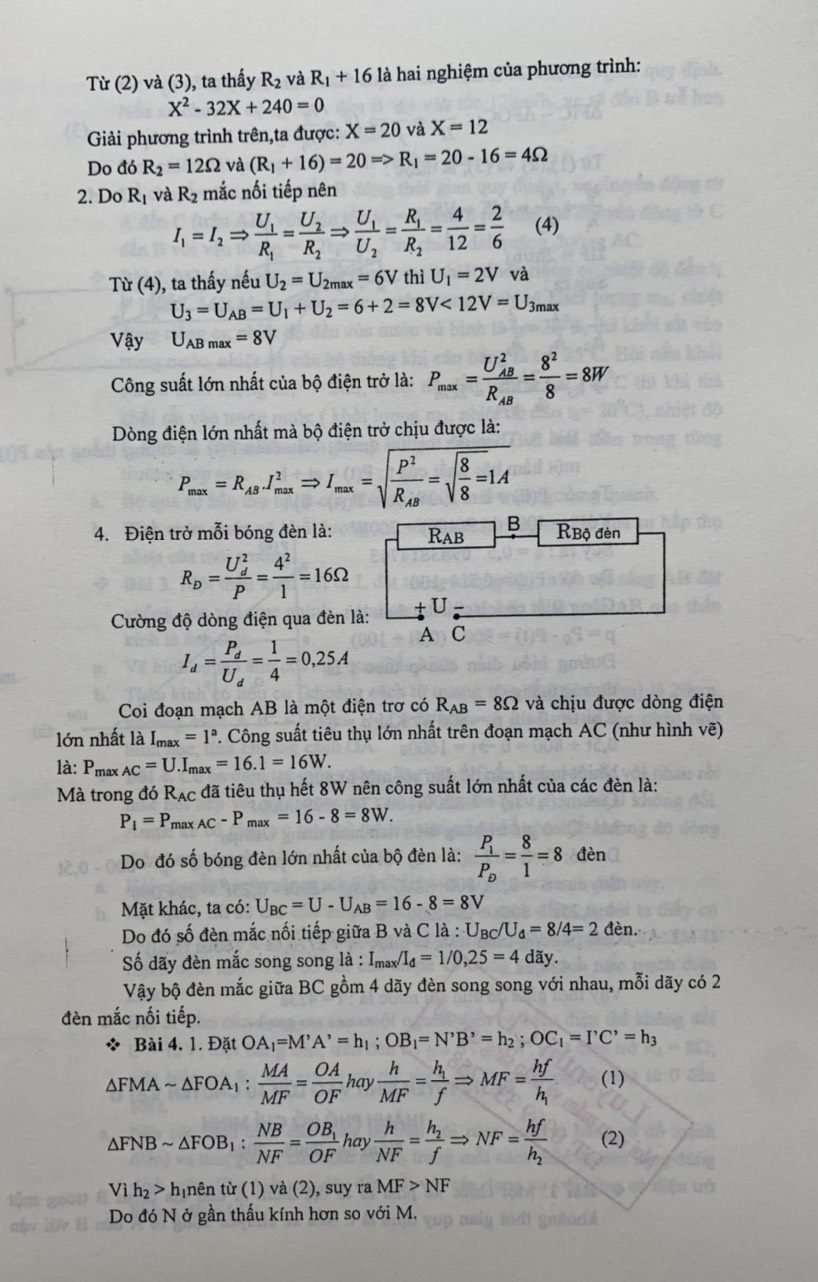 Từ (2) và (3), ta thấy R₂ và R₁ + 16 là hai nghiệm của phương trình:
X² - 32X + 240 = 0
Giải phương trình trên,ta được: X = 20 và X = 12
Do đó R₂ = 12Ω và (R₁ + 16) = 20 => R₁ = 20 - 16 = 4Ω
2. Do R₁ và R₂ mắc nối tiếp nên
I₁ = I₂ ⇒ U₁/R₁ = U₂/R₂ ⇒ U₁/U₂ = R₁/R₂ = 4/12 = 2/6 (4)
Từ (4), ta thấy nếu U₂ = U₂max = 6V thì U₁ = 2V và
U₃ = U_AB = U₁ + U₂ = 6 + 2 = 8V< 12V = U₃max
Vậy U_AB max = 8V
Công suất lớn nhất của bộ điện trở là: P_max = U²_AB/R_AB = 8²/8 = 8W
Dòng điện lớn nhất mà bộ điện trở chịu được là:
P_max = R_AB.I²_max ⇒ I_max = √(P²/R_AB = √(8/8 =1A
4. Điện trở mỗi bóng đèn là:
R_Đ = U²_d/P = 4²/1 = 16Ω
Cường độ dòng điện qua đèn là:
I_d = P_d/U_d = 1/4 = 0,25A
R_AB B R_Bộ đèn
+ U −
A C
Coi đoạn mạch AB là một điện trơ có R_AB = 8Ω và chịu được dòng điện
lớn nhất là I_max = 1ª. Công suất tiêu thụ lớn nhất trên đoạn mạch AC (như hình vẽ)
là: P_max AC = U.I_max = 16.1 = 16W.
Mà trong đó R_AC đã tiêu thụ hết 8W nên công suất lớn nhất của các đèn là:
P₁ = P_max AC - P_max = 16 - 8 = 8W.
Do đó số bóng đèn lớn nhất của bộ đèn là: P₁/P_Đ = 8/1 = 8 đèn
Mặt khác, ta có: U_BC = U - U_AB = 16 - 8 = 8V
Do đó số đèn mắc nối tiếp giữa B và C là : U_BC/U_d = 8/4= 2 đèn.
Số dãy đèn mắc song song là : I_max/I_d = 1/0,25 = 4 dãy.
Vậy bộ đèn mắc giữa BC gồm 4 dãy đèn song song với nhau, mỗi dãy có 2
đèn mắc nối tiếp.
❖ Bài 4. 1. Đặt OA₁=M'A' = h₁ ; OB₁= N'B' = h₂ ; OC₁ = I'C' = h₃
ΔFMA ~ ΔFOA₁ : MA/MF = OA/OF hay h/MF = h₁/f ⇒ MF = hf/h₁ (1)
ΔFNB ~ ΔFOB₁ : NB/NF = OB₁/OF hay h/NF = h₂/f ⇒ NF = hf/h₂ (2)
Vì h₂ > h₁nên từ (1) và (2), suy ra MF > NF
Do đó N ở gần thấu kính hơn so với M.